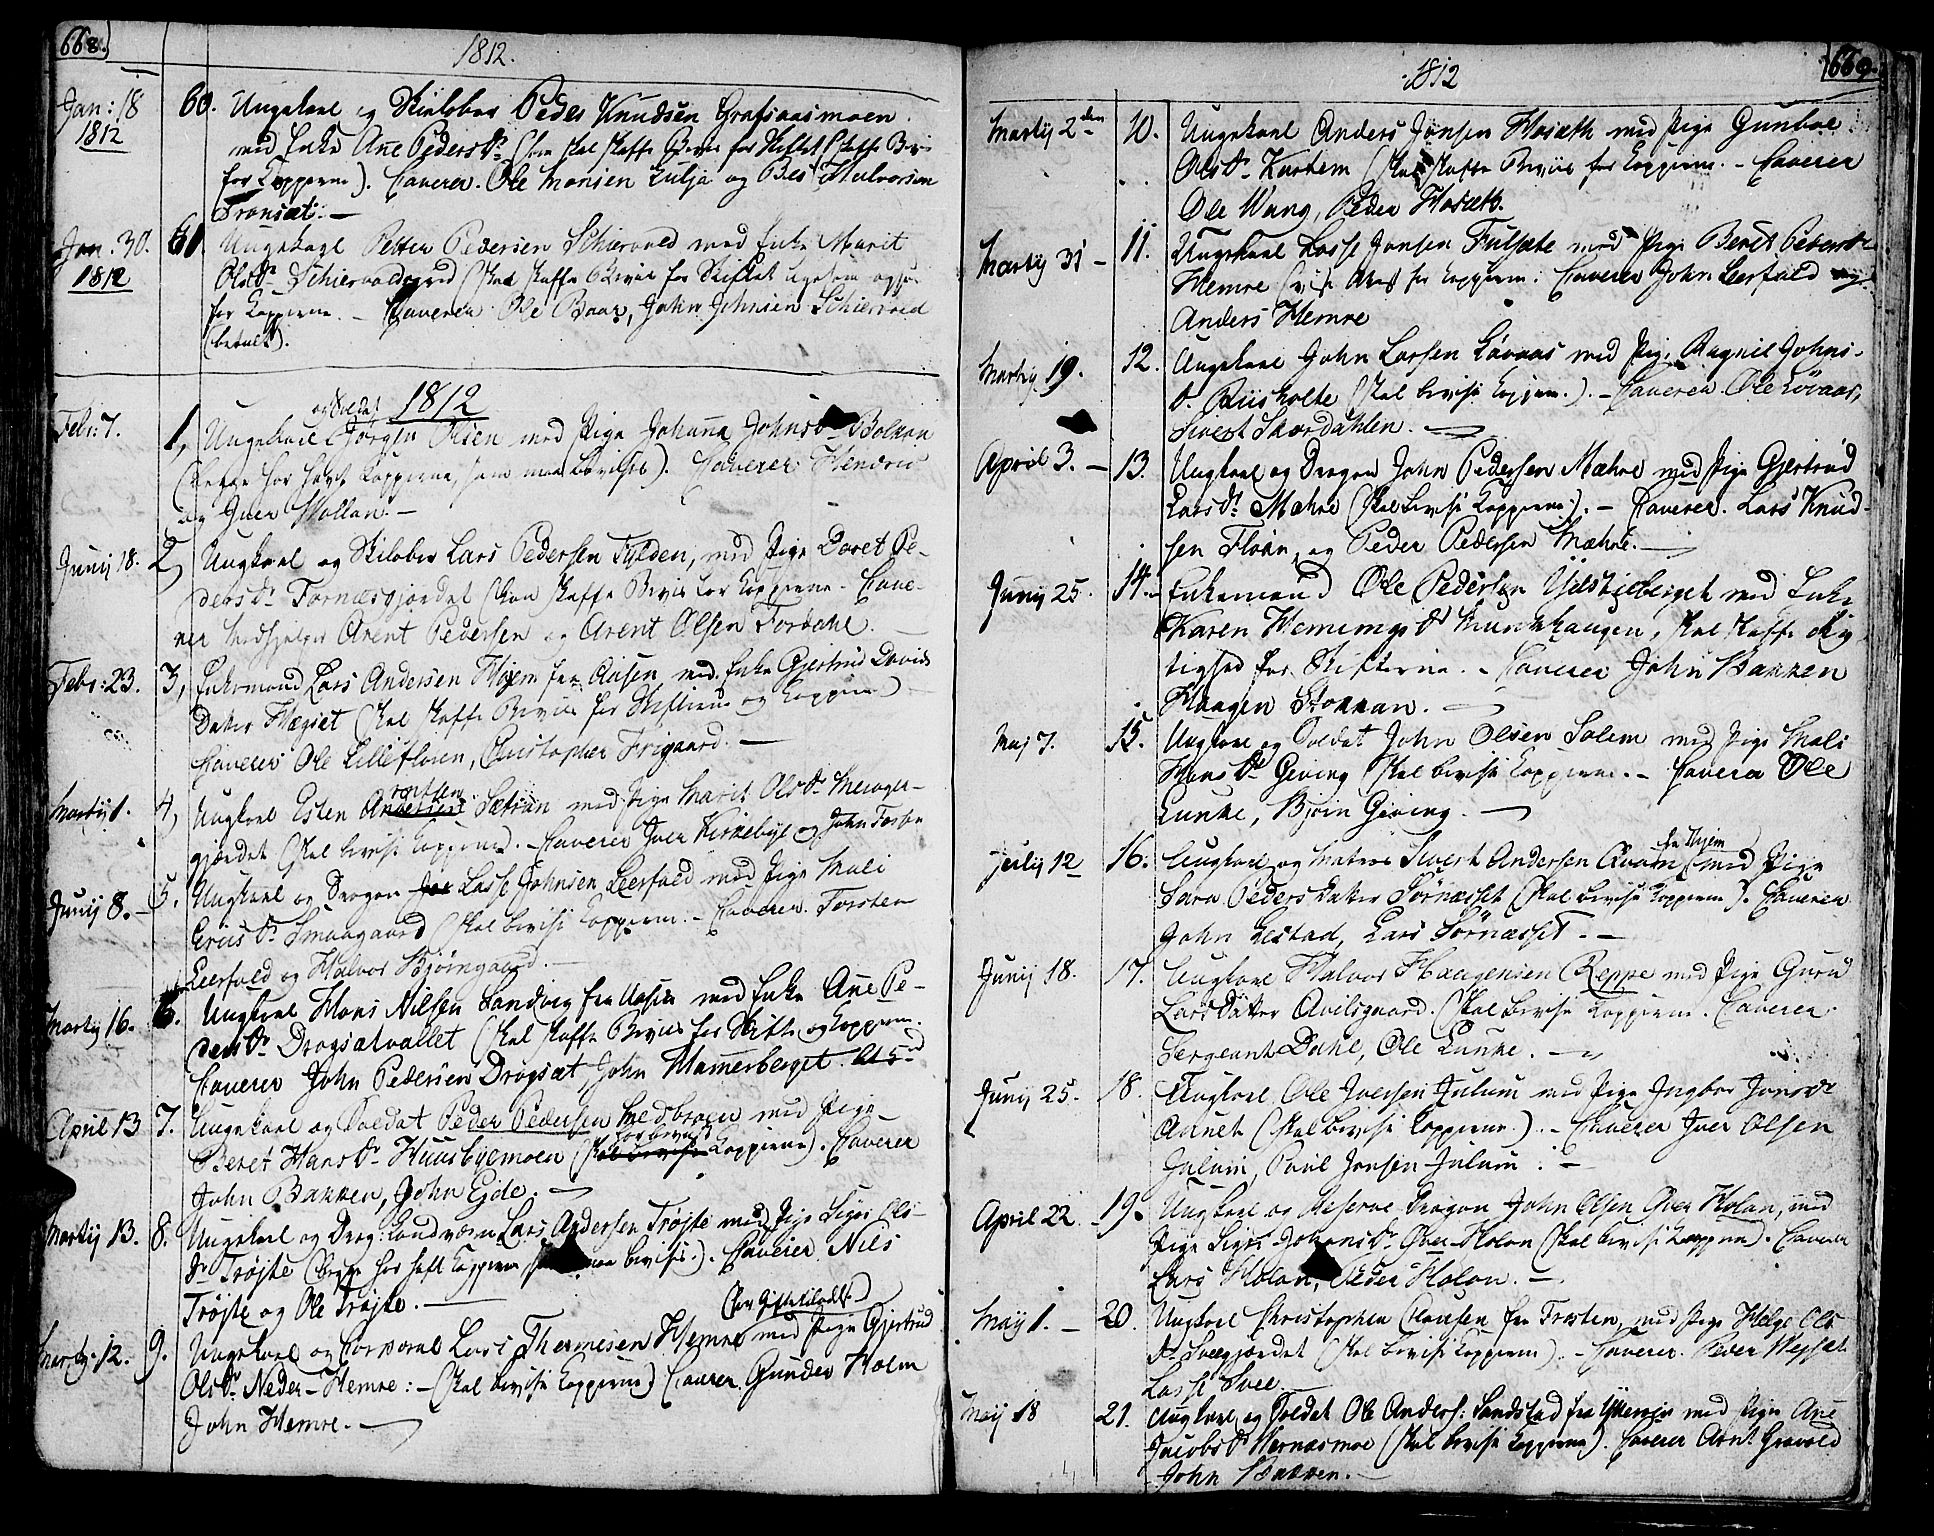 668.
1812.
Jan: 18
1812
60. Ungekarl og Skieløber Peder Knudsen Grafsaasmoen
med Enke Ane Peders Dr. (som skal skaffe Beviis for Skiftet
for Kopperne). Caverer. Ole Monsen Julja og Halvorsen
Tronsæt. —
Jan. 30.
1812
61. Ungekarl Petter Pedersen Schiervold med Enke Marit
Ols Dr. (skal skaffe Beviis for Skiftet
for Kopperne. — Caverer Ole Baar, John Johnsen Schiervold
(betalt).
1812
Febr: 7.
og Soldat
1, Ungekarl Jørgen Olsen med Pige Johanna Johns Dr. Bolkan
(begge har havt Kopperne, som maa bevises). Caverer Hendric
og Iver Mollan. —
Junij 18.
2, Ungkarl og Skiløber Lars Pedersen Fulden, med Pige Doret Pe-
ders Dr. Fornæsgjerdet (kan skaffe Beviis for Kopperne. Cave-
rer Arent Pedersen og Arent Olsen Fordahl. —
Febr: 23.
3, Enkemand Lars Andersen Hojem fra Aasen med Enke Gjertrud Davids
Datter Flægset (skal skaffe Beviis for Skifterne og Kopperne)
Caverer Ole Lillefloren, Christopher Frigaard. —
Martij 1.
4, Ungkarl Esten Andersen Sætran med Pige Marit Ols Dr. Meroger-
gjærdet (skal bevise Kopperne). — Caverer Iver Kirkebye og John
Junij 8. —
5. Ungkarl og Dragon Lasse Johnsen Leerfald med Pige Mali
Erics Dr. Smaagaard (skal bevise Kopperne. — Caverer. Torsten
Leerfald og Halvor Bjørngaard. —
Martij 16.
6. Ungkarl Hans Nilsen Sandvig fra Aasen med Enke Ane Pe-
ders Dr. Dragsætvallet (skal skaffe Beviis for Skifte og Kopperne.
Caverer John Pedersen Dragsæt, John Hammerberget.
April 13
7. Ungekarl og Soldat Peder Pedersen Medbroen med Pige
har beviist
Beret Hans Dr. Huusbyemoen (skal bevise Kopperne). Caverer
John Bakken, John Ejde. —
Martij 13.
8. Ungekarl og Drag: Landværn Lars Andersen Trøjte med Pige Sigri Ols-
Dr. Trøjte (begge har haft Kopperne maa bevises). Caverer Nils
Trøjte og Ole Trøjte. —
Martij. 12.
9. Ungekarl og Corporal Lars Thermesen Hemre med Pige Gjertrud
Ols Dr. Neder-Hemre: — (skal bevise Kopperne) Caverer. Gunder Holm
John Hemre. —
669.
1812
Martij 2den
10. Ungekarl Anders Jonsen Hosæth med Pige Gunbor
Ols Dr. Karhem (skal skaffe Beviis for Kopperne. — Caverer
Ole Wang, Peder Hosæth.
Martij 31 —
11. Ungekarl Lasse Jonsen Fulsæte med Pige Beret Peders Dr.
Hemre for Kopperne. Caverer John Leerfald
Anders Hemre
Martij 19.
12. Ungekarl John Larsen Løvaas med Pige Ragnil Johns-
Dr. Riisholte (skal bevise Kopperne). — Caverer Ole Løvaas,
Sivert Skordahlen. —
April 3. —
13. Ungkarl og Dragon John Pedersen Mæhre med Pige Gjertrud
Lars Dr. Mæhre (skal bevise Kopperne). — Caverer. Lars Knud-
sen Floan, og Peder Pedersen Mæhre. —
Junij 25.
14. Enkemand Ole Pedersen Ydstieberget med Enke
Karen Hemings Dr. Munkhaugen, skal skaffe Rig-
tighed for Skifterne. — Caverer John Bakken
Haagen Stokkan. —
Maj 7.
15. Ungkarl og Soldat John Olsen Salem med Pige Mali
Hans Dr. Geving (skal bevise Kopperne. — Caverer Ole
Lunke, Bjørn Geving. —
Julij 12
16. Ungkarl og Matros Sivert Andersen Qvam med Pige
Sara Peders Datter Sørnæsset (skal bevise Kopperne). Caverer
John Lestad, Lars Sørnæsset. —
Junij 18.
17. Ungkarl Halvor Haagensen Reppe med Pige Guru
Lars Datter Avelsgaard. (skal bevise Kopperne. Caverer
Sergeant Dahl, Ole Lunke. —
Junij 25.
18. Ungkarl Ole Iversen Julum med Pige Ingbor Jons Dr.
Aunet (skal bevise Kopperne). — Caverer Iver Olsen
Julum, Paul Jonsen Julum. —
April 22.
19. Ungkarl og Reserve Dragon John Olsen Øver Holan, med
Pige Sigri Johans Dr. Øver-Holan (skal bevise Kopperne). Caverer
Lars Holan, Peder Holan. —
May 1. —
20. Ungkarl Christopher Clausen fra Frosten, med Pige Helge Ols
Dr. Sveegjærdet (skal bevise Kopperne). — Caverer. Peder
Lasse Svee
Maij 18
21. Ungkarl og Soldat Ole Anders: Sandstad fra Ytterøen med Pige Ane
Jacobs Dr. Wernæsmoe (skal bevise Kopperne). Caverer Arnt Gravold
John Bakken. —